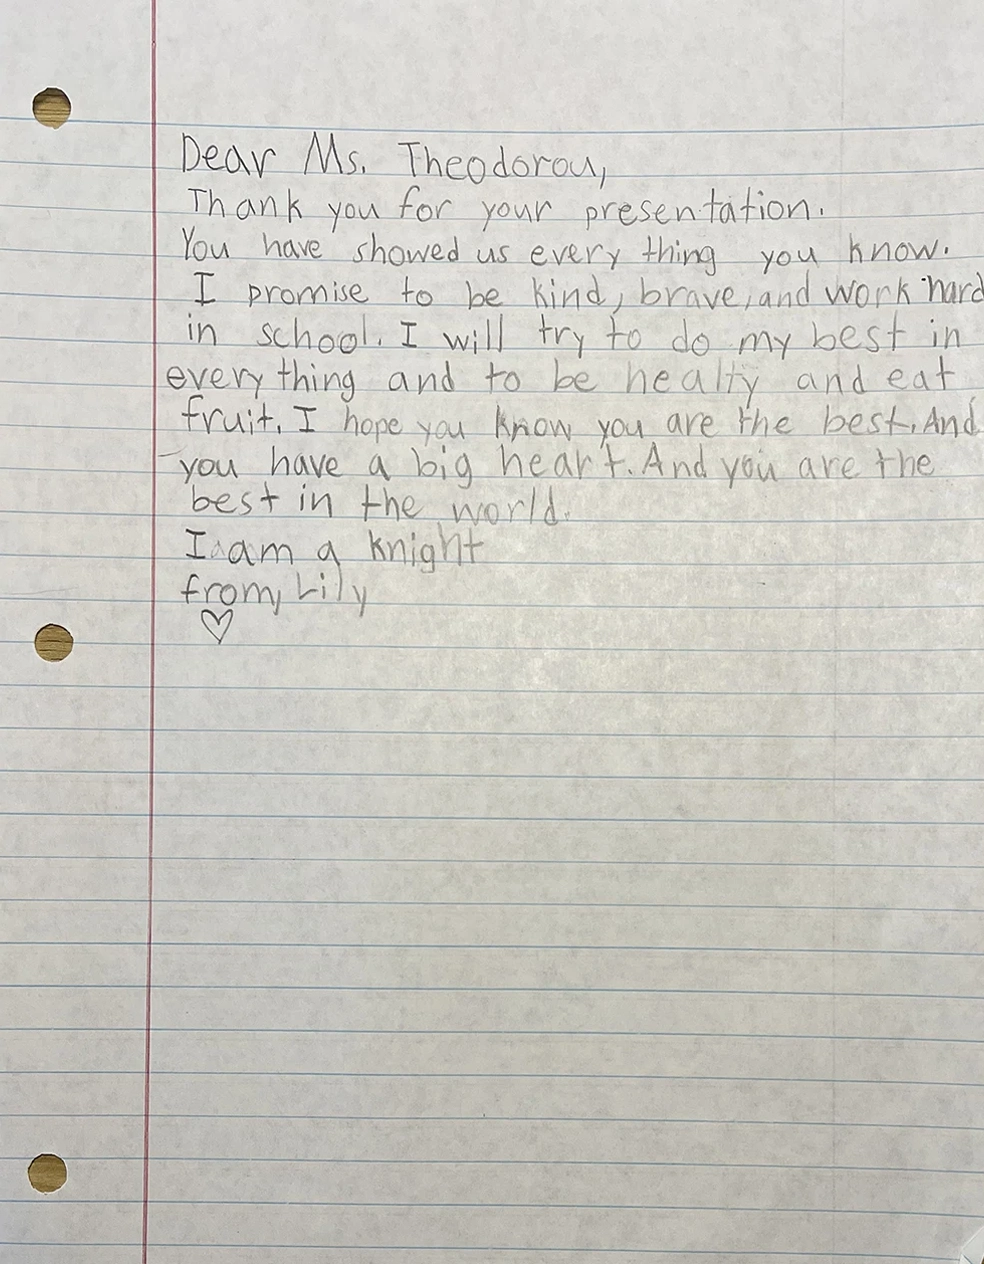 Dear Ms. Theodorou,
Thank you for your presentation.
You have showed us every thing you know.
I promise to be kind, brave, and work hard
in school. I will try to do my best in
every thing and to be healty and eat
fruit. I hope you know you are the best. And
you have a big heart. And you are the
best in the world.
I am a knight
from, Lily